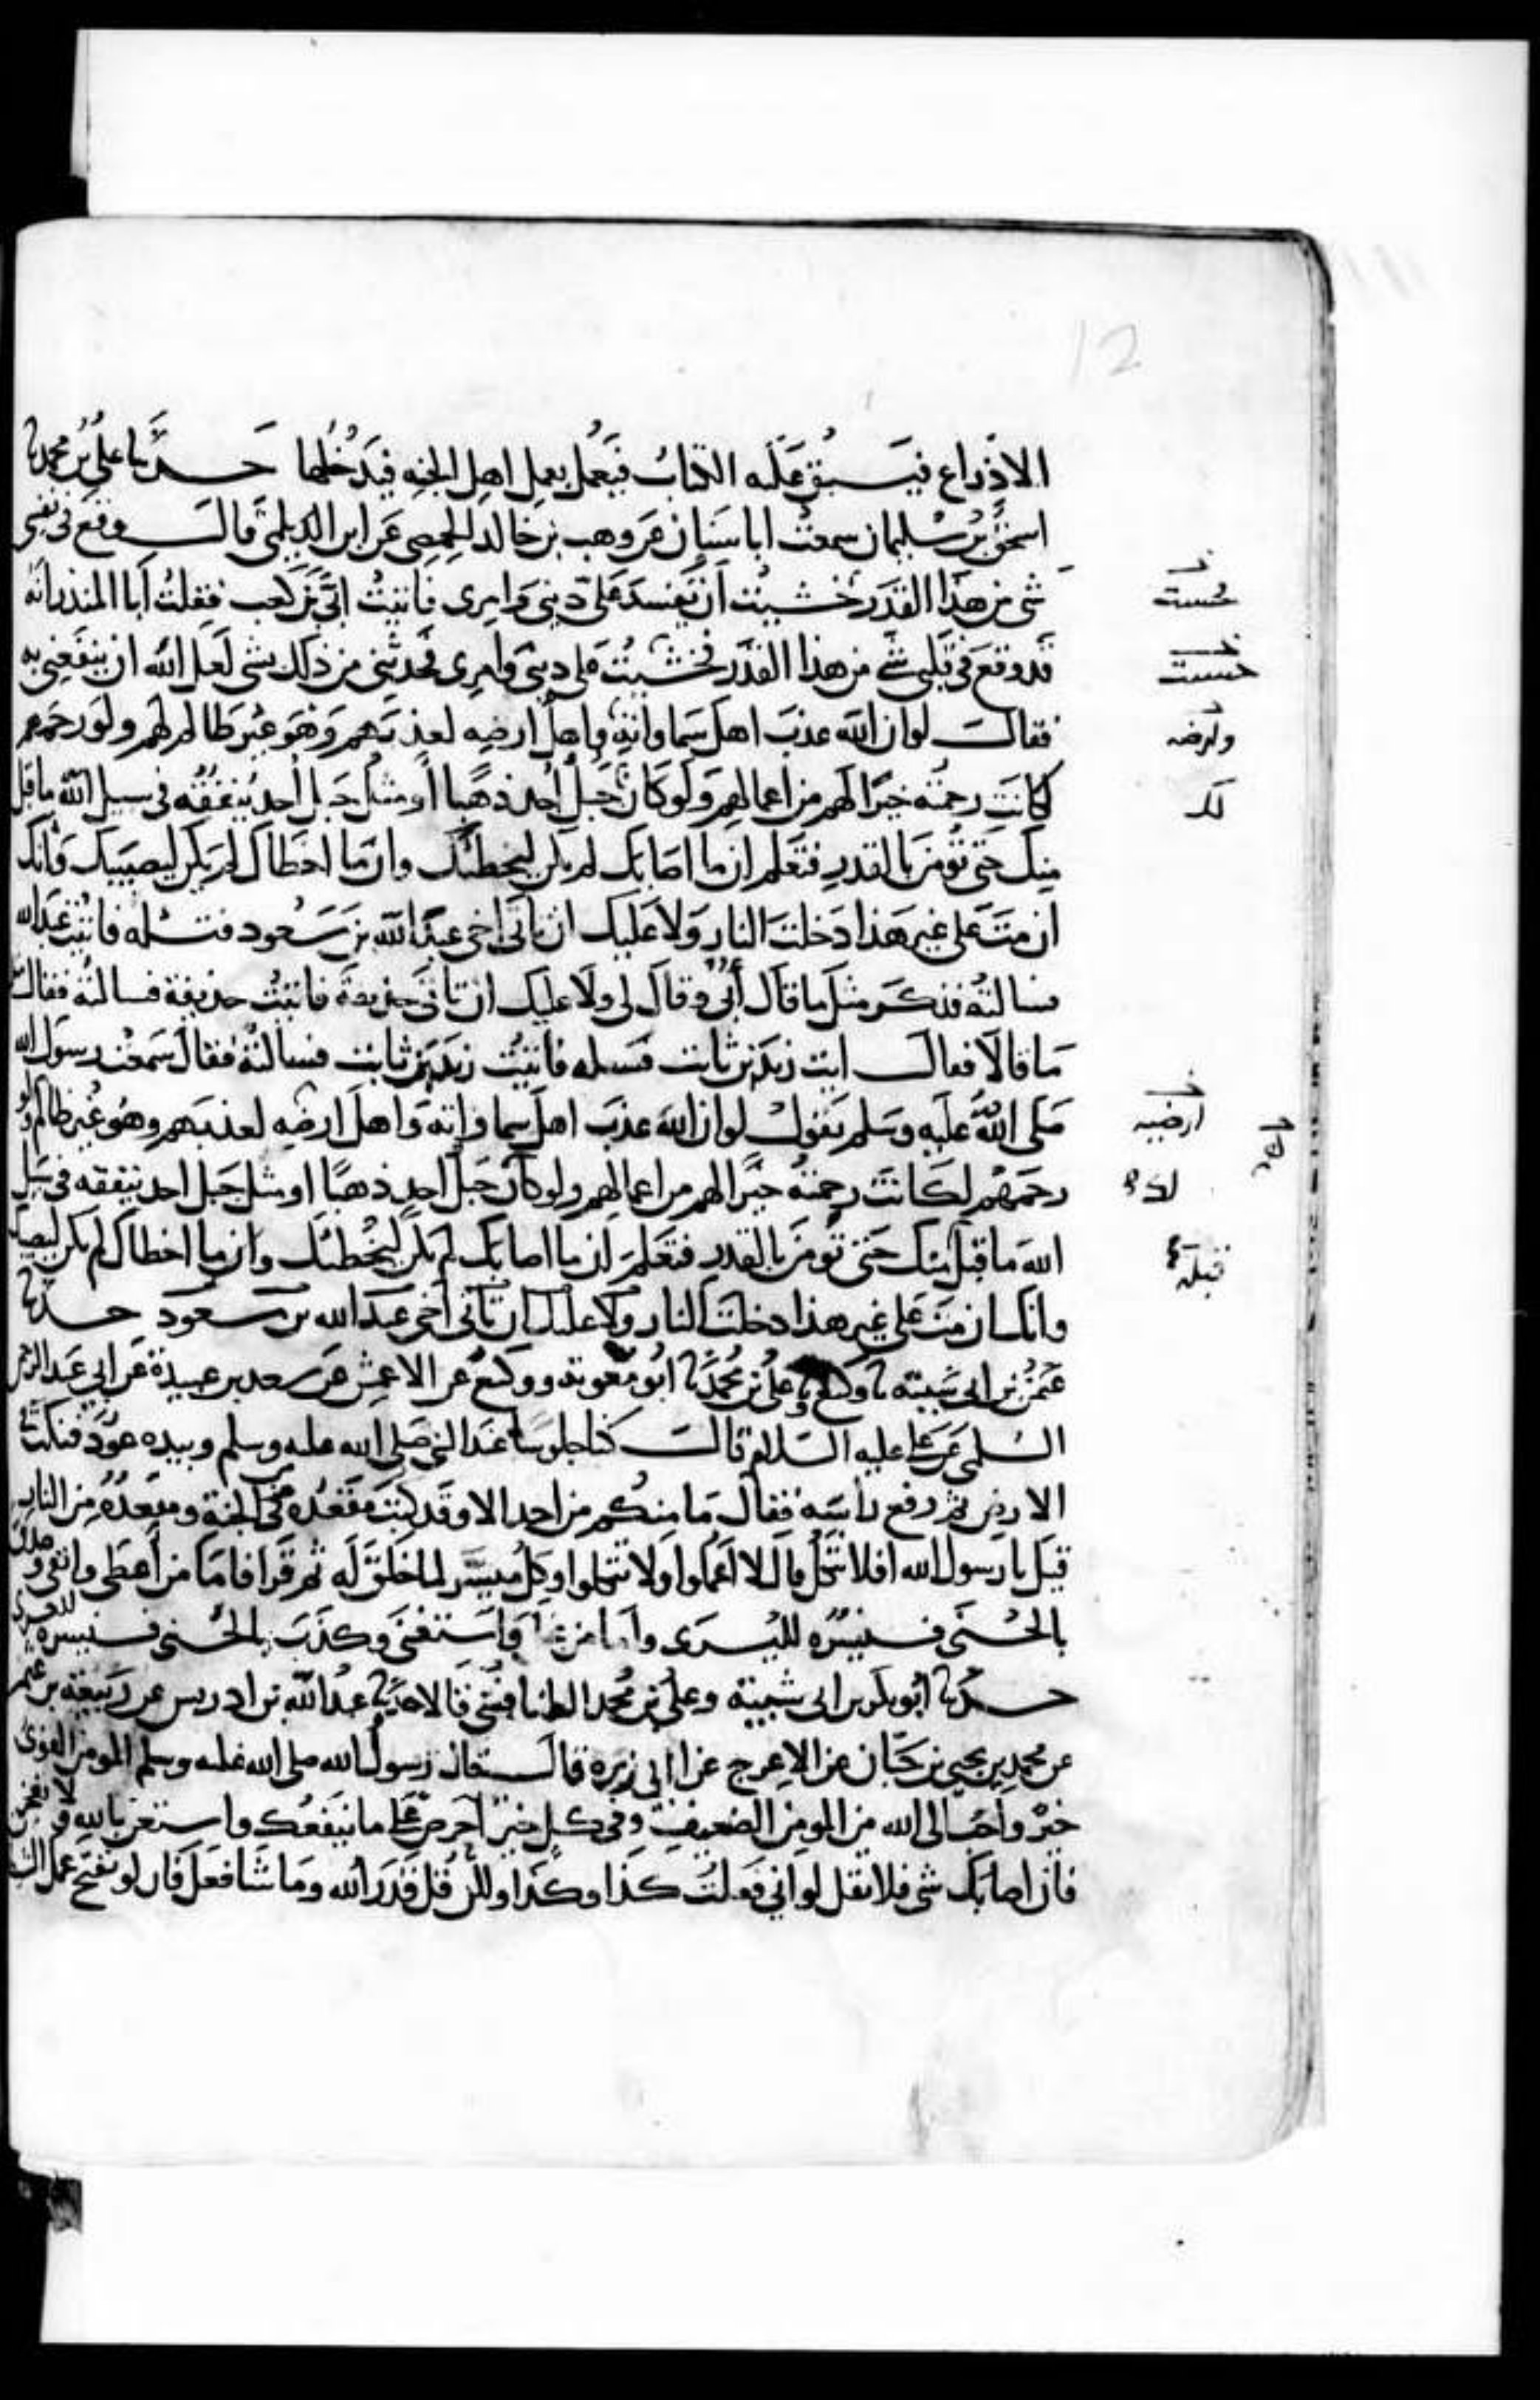 12
الا ذراع فيسبق عليه الكتاب فيعمل بعمل اهل الجنه فيدخلها حدثنا علي بن محمد نا
اسحق بن سليمان سمعت ابا سنان عن وهب بن خالد الحمصي عن ابن الديلمي قال وقع في نفسي
شي من هذا القدر خشيت ان يفسد علي ديني وامري فاتيت ابي بن كعب فقلت ابا المنذر انه
قد وقع في قلبي شي من هذا القدر فخشيت على ديني وامري فحدثني من ذلك بشي لعل الله ان ينفعني به
فقال لو ان الله عذب اهل سماواته واهل ارضه لعذبهم وهو غير ظالم لهم ولو رحمهم
لكانت رحمته خيرا لهم من اعمالهم ولو كان جبل احد ذهبا او مثل جبل احد ينفقه في سبيل الله ما قبل
منك حتى تؤمن بالقدر فتعلم ان ما اصابك لم يكن ليخطئك وان ما اخطاك لم يكن ليصيبك وانك
ان مت على غير هذا دخلت النار ولا عليك ان تاتي اخي عبد الله بن مسعود فتسله فاتيت عبد الله
فسالته فذكر مثل ما قال ابي وقال لي ولا عليك ان تاتي حذيفة فاتيت حذيفة فسالته فقال مثل
ما قالا فقال ايت زيد بن ثابت فسله فاتيت زيد بن ثابت فسالته فقال سمعت رسول الله
صلى الله عليه وسلم يقول لو ان الله عذب اهل سماواته واهل ارضه لعذبهم وهو غير ظالم ولو
رحمهم لكانت رحمته خيرا لهم من اعمالهم ولو كان جبل احد ذهبا او مثل جبل احد ينفقه في سبيل
الله ما قبل منك حتى تؤمن بالقدر فتعلم ان ما اصابك لم يكن ليخطئك وان ما اخطاك لم يكن ليصيبك
وانك ان مت على غير هذا دخلت النار ولا عليك ان تاتي اخي عبد الله بن مسعود حدثنا
عثمن بن ابي شيبته نا وكيع ونا علي بن محمد نا ابو معوية ووكيع عن الاعمش عن سعد بن عبيدة عن ابي عبد الرحمن
السلمي عن علي عليه السلام قال كنا جلوسا عند النبي صلى الله عليه وسلم وبيده عود فنكت في
الارض ثم رفع راسه فقال ما منكم من احد الا وقد كتب مقعده من الجنة ومقعده من النار
قيل يا رسول الله افلا نتكل قال لا اعملوا ولا تتكلوا وكل ميسر لما خلق له ثم قرا فاما من اعطى واتقى وصدق
بالحسنى فسنيسره لليسرى واما من بخل واستغنى وكذب بالحسنى فسنيسره للعسرى
حدثنا ابو بكر بن ابي شيبة وعلي بن محمد الطنافسي قالا حدثنا عبد الله بن ادريس عن ربيعة بن عثمن
عن محمد بن يحيى بن حبان عن الاعرج عن ابي هريرة قال قال رسول الله صلى الله عليه وسلم المومن القوي
خير واحب الى الله من المومن الضعيف وفي كل خير احرص على ما ينفعك واستعن بالله ولا تعجز
فان اصابك شي فلا تقل لو اني فعلت كذا وكذا ولكن قل قدر الله وما شا فعل فان لو تفتح عمل
خشيت
خشيت
وارضه
لك
ارضيه
قبله